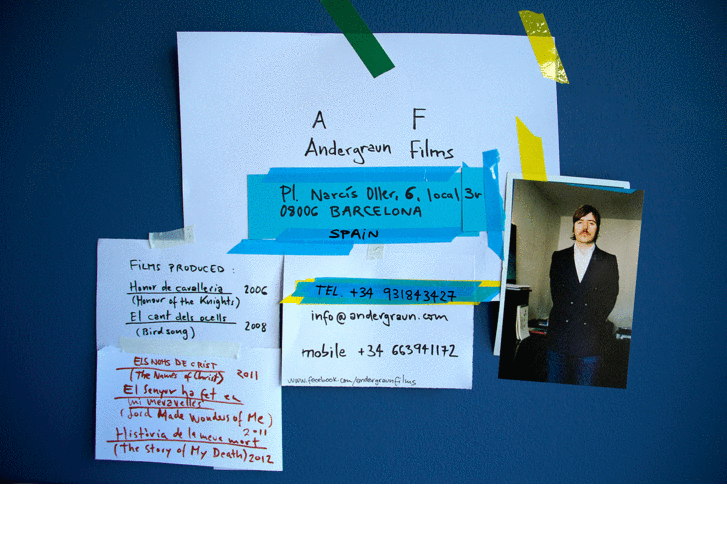 A F
Andergraun Films
Pl. Narcís Oller, 6, local 3r
08006 BARCELONA
SPAIN
TEL. +34 931843427
info@andergraun.com
mobile +34 663941172
www.facebook.com/andergraunfilms
FILMS PRODUCED:
Honor de cavalleria 2006
(Honour of the Knights)
El cant dels ocells 2008
(Birdsong)
ELS NOMS DE CRIST
(The Names of Christ) 2011
El Senyor ha fet en
mi meravelles
(Lord Made Wonders of Me)
2011
Història de la meva mort
(The Story of My Death) 2012